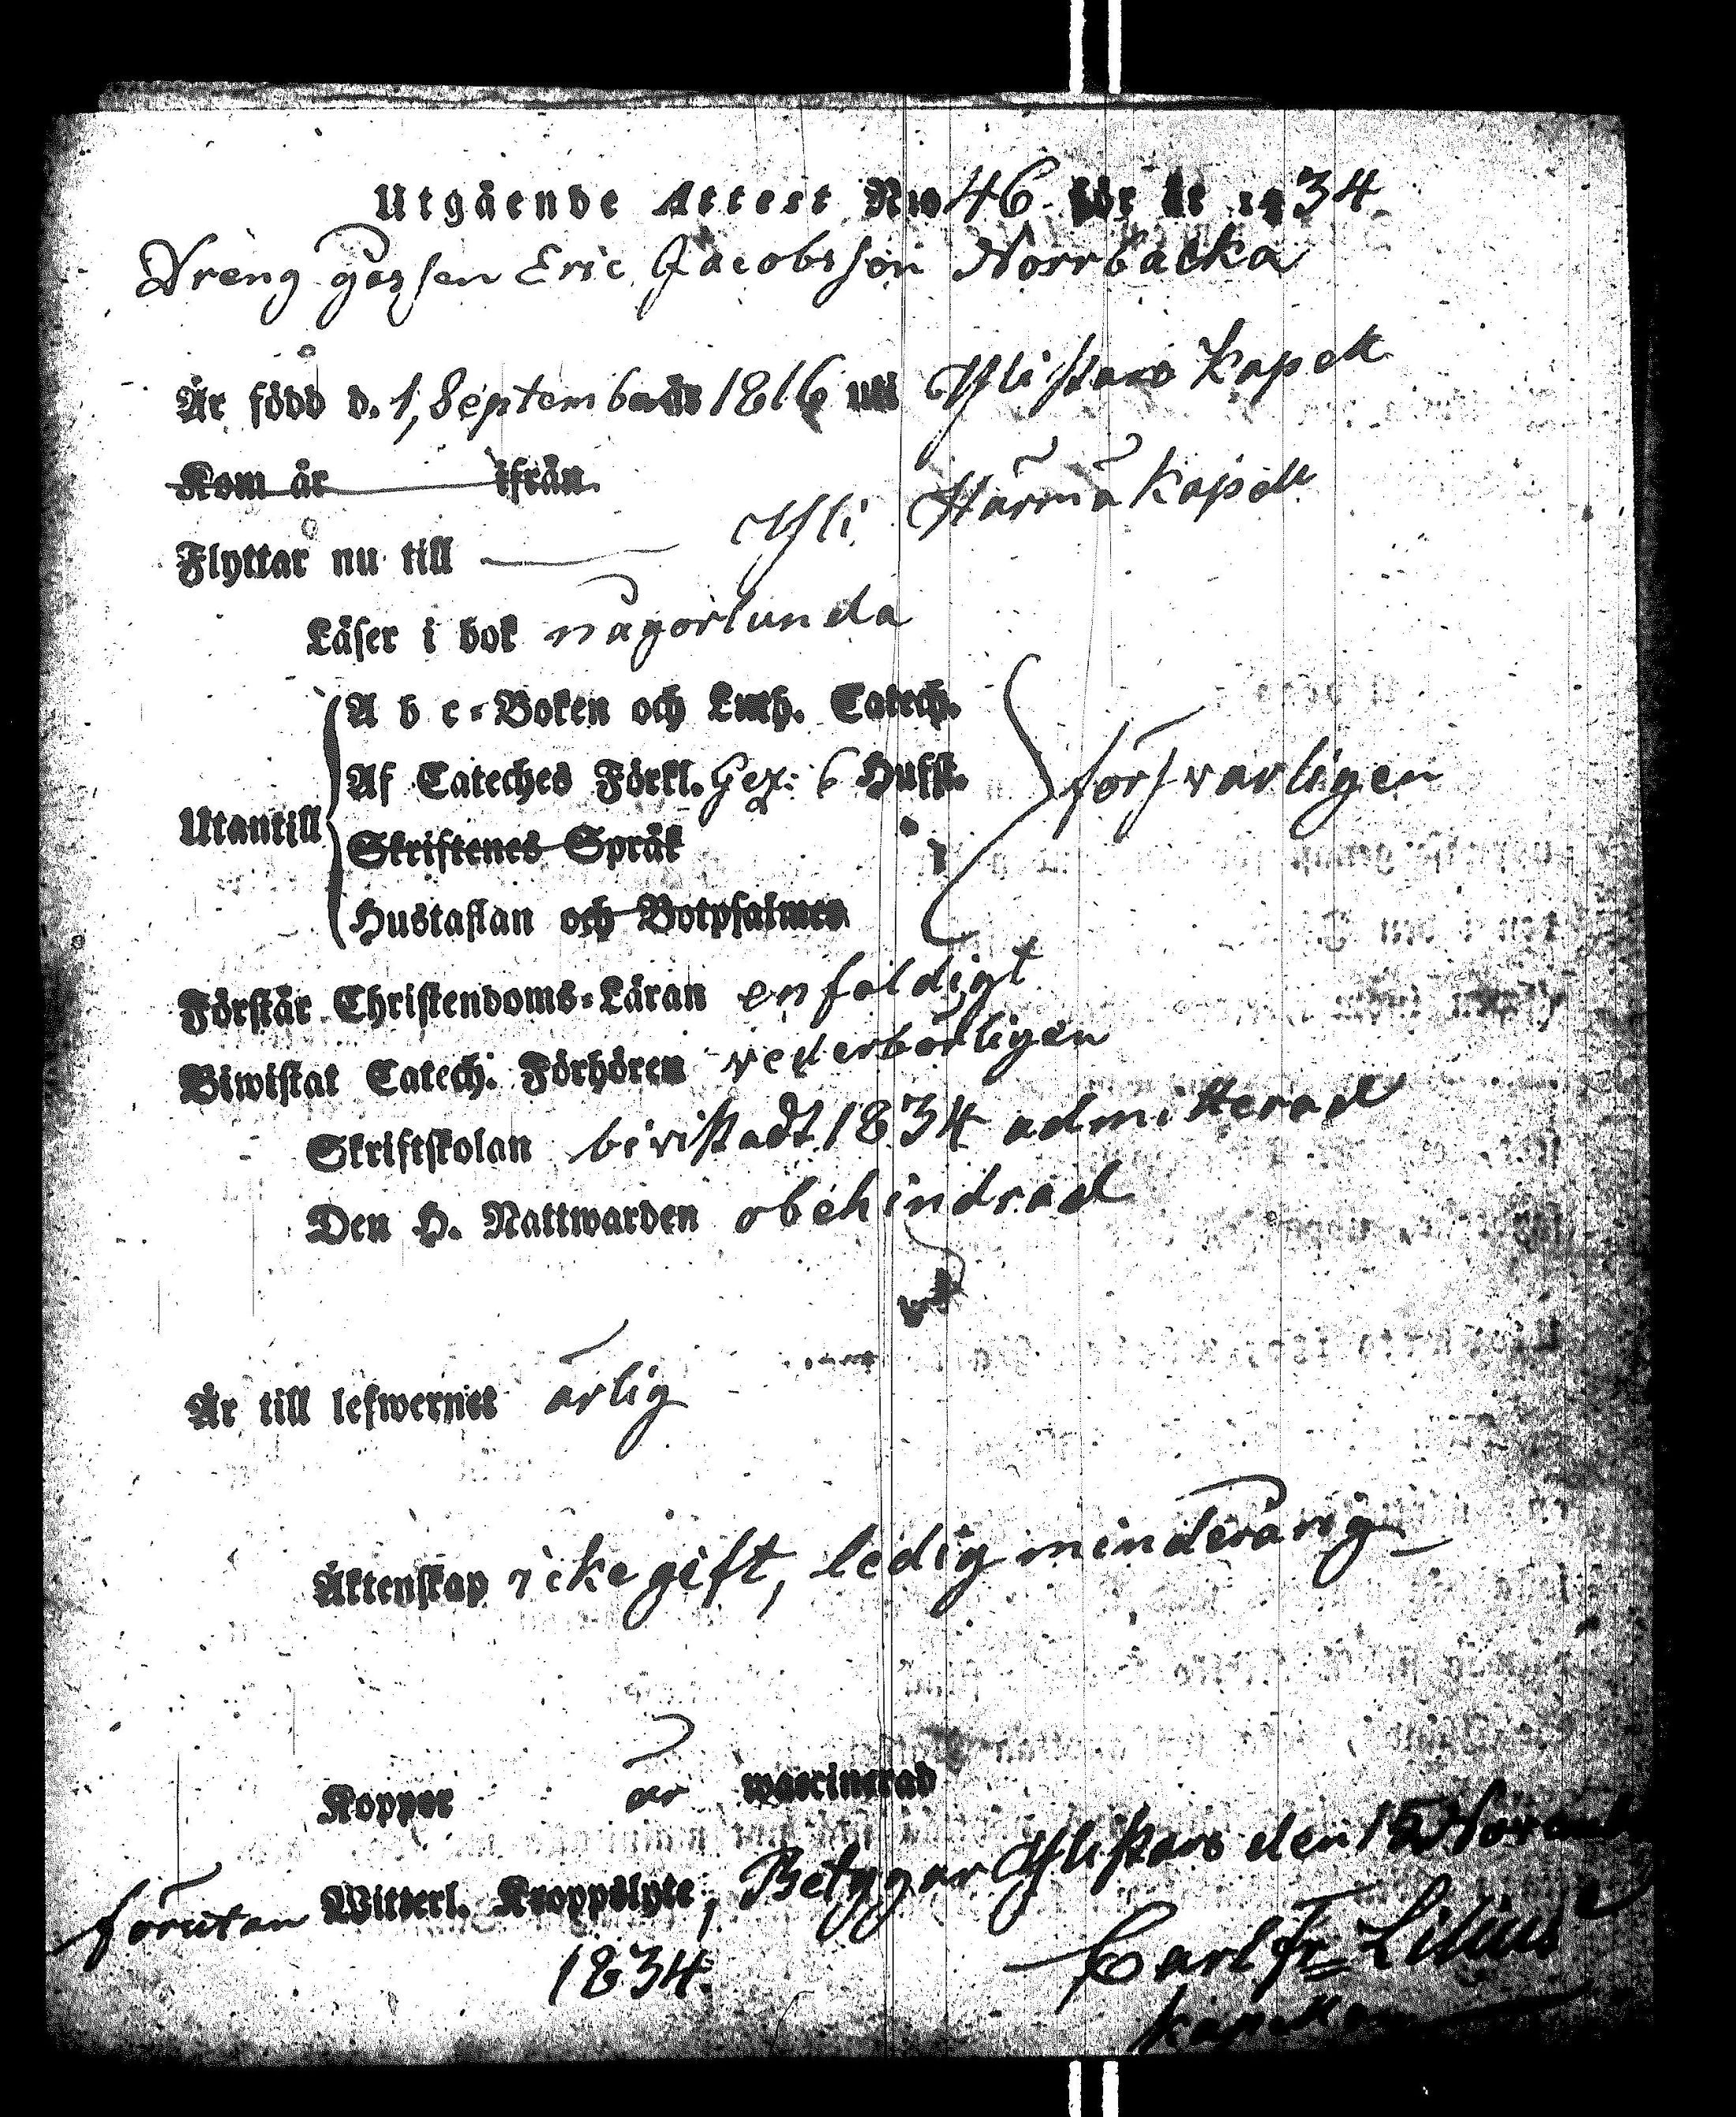 Utgående Attest N:o 46 för år 1834.
Dreng gossen Eric Jacobsson Norrbacka
Är född d. 1, September år 1816 uti Ylistaro Kapell
Kom år ifrån
Flyttar nu till Yli Härmä Kapell
Läser i bok någorlunda
A b c-Boken och Luth. Catech.
Af Cateches Förkl. Gez: 6 Hufst. försvarligen
Utantill
Skriftenes Språk
Hustaflan och Botpsalmer
Förstår Christendoms-Läran enfaldigt
Biwistat Catech. Förhören vederbörligen
Skriftskolan bivistadt 1834 admitterad
Den H. Nattwarden obehindrad
Är till lefwernet ärlig
Äktenskap icke gift, ledig minderårig
Koppor är waccinerad
förutan Witterl. Kroppslyte, Betygar Ylistaro den 15 Novemb
1834. Carl Fr. Lilius